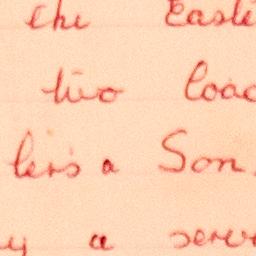 the Easte
two load
leis a Son.
y a serv